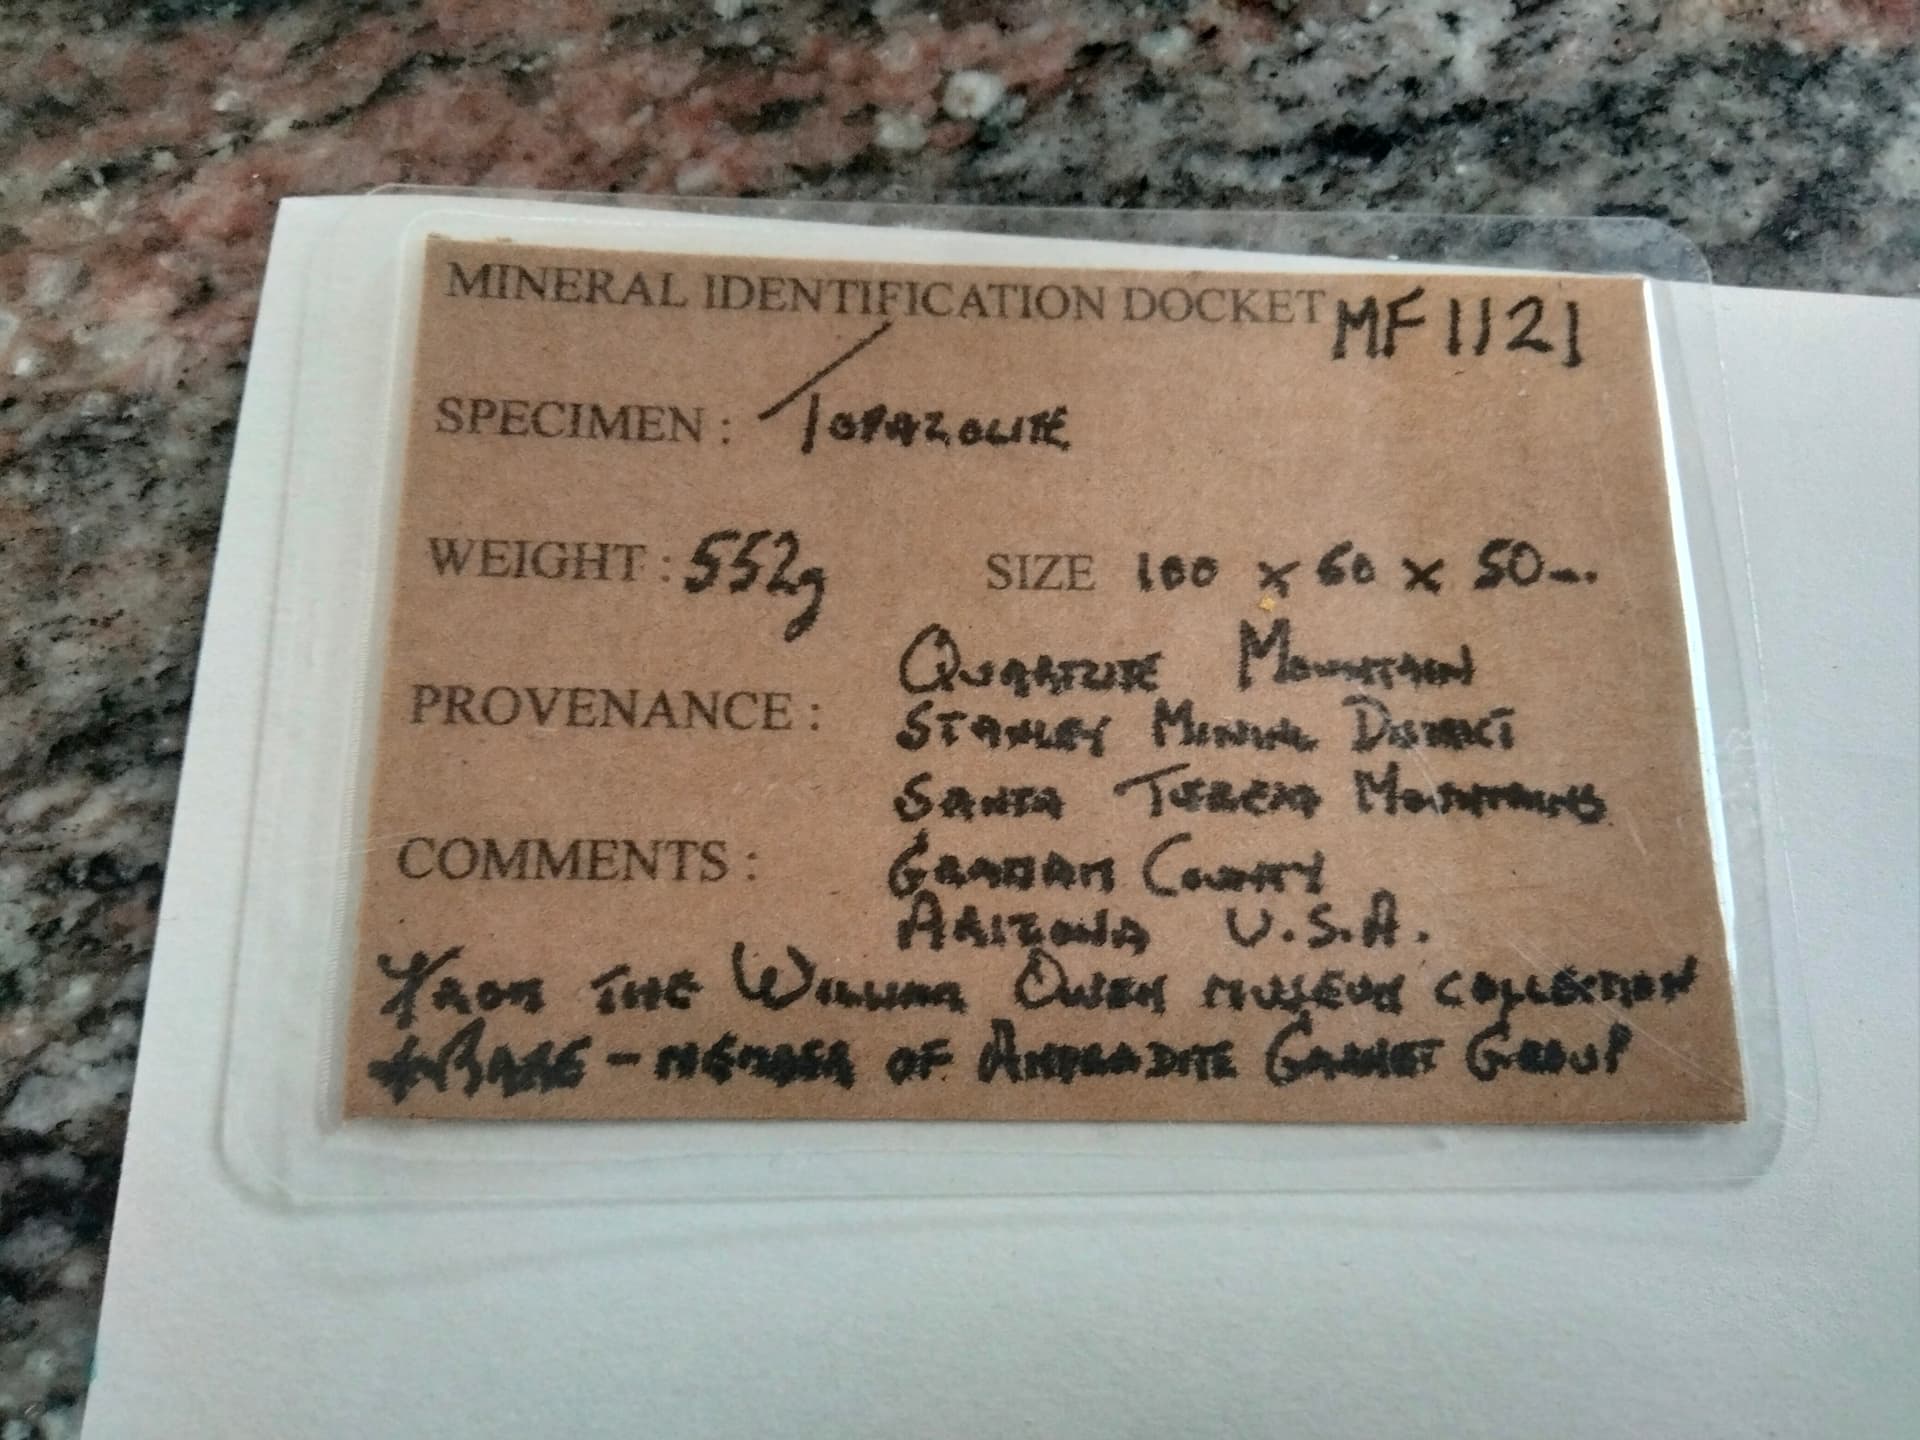 MINERAL IDENTIFICATION DOCKET MF1121
SPECIMEN : TOPAZOLITE
WEIGHT : 552g SIZE 100 x 60 x 50mm
PROVENANCE : QUARTZITE MOUNTAIN
STANLEY MINING DISTRICT
SANTA TERESA MOUNTAINS
COMMENTS : GRAHAM COUNTY
ARIZONA U.S.A.
FROM THE WILLIAM OWEN MUSEUM COLLECTION
*RARE - MEMBER OF ANDRADITE GARNET GROUP